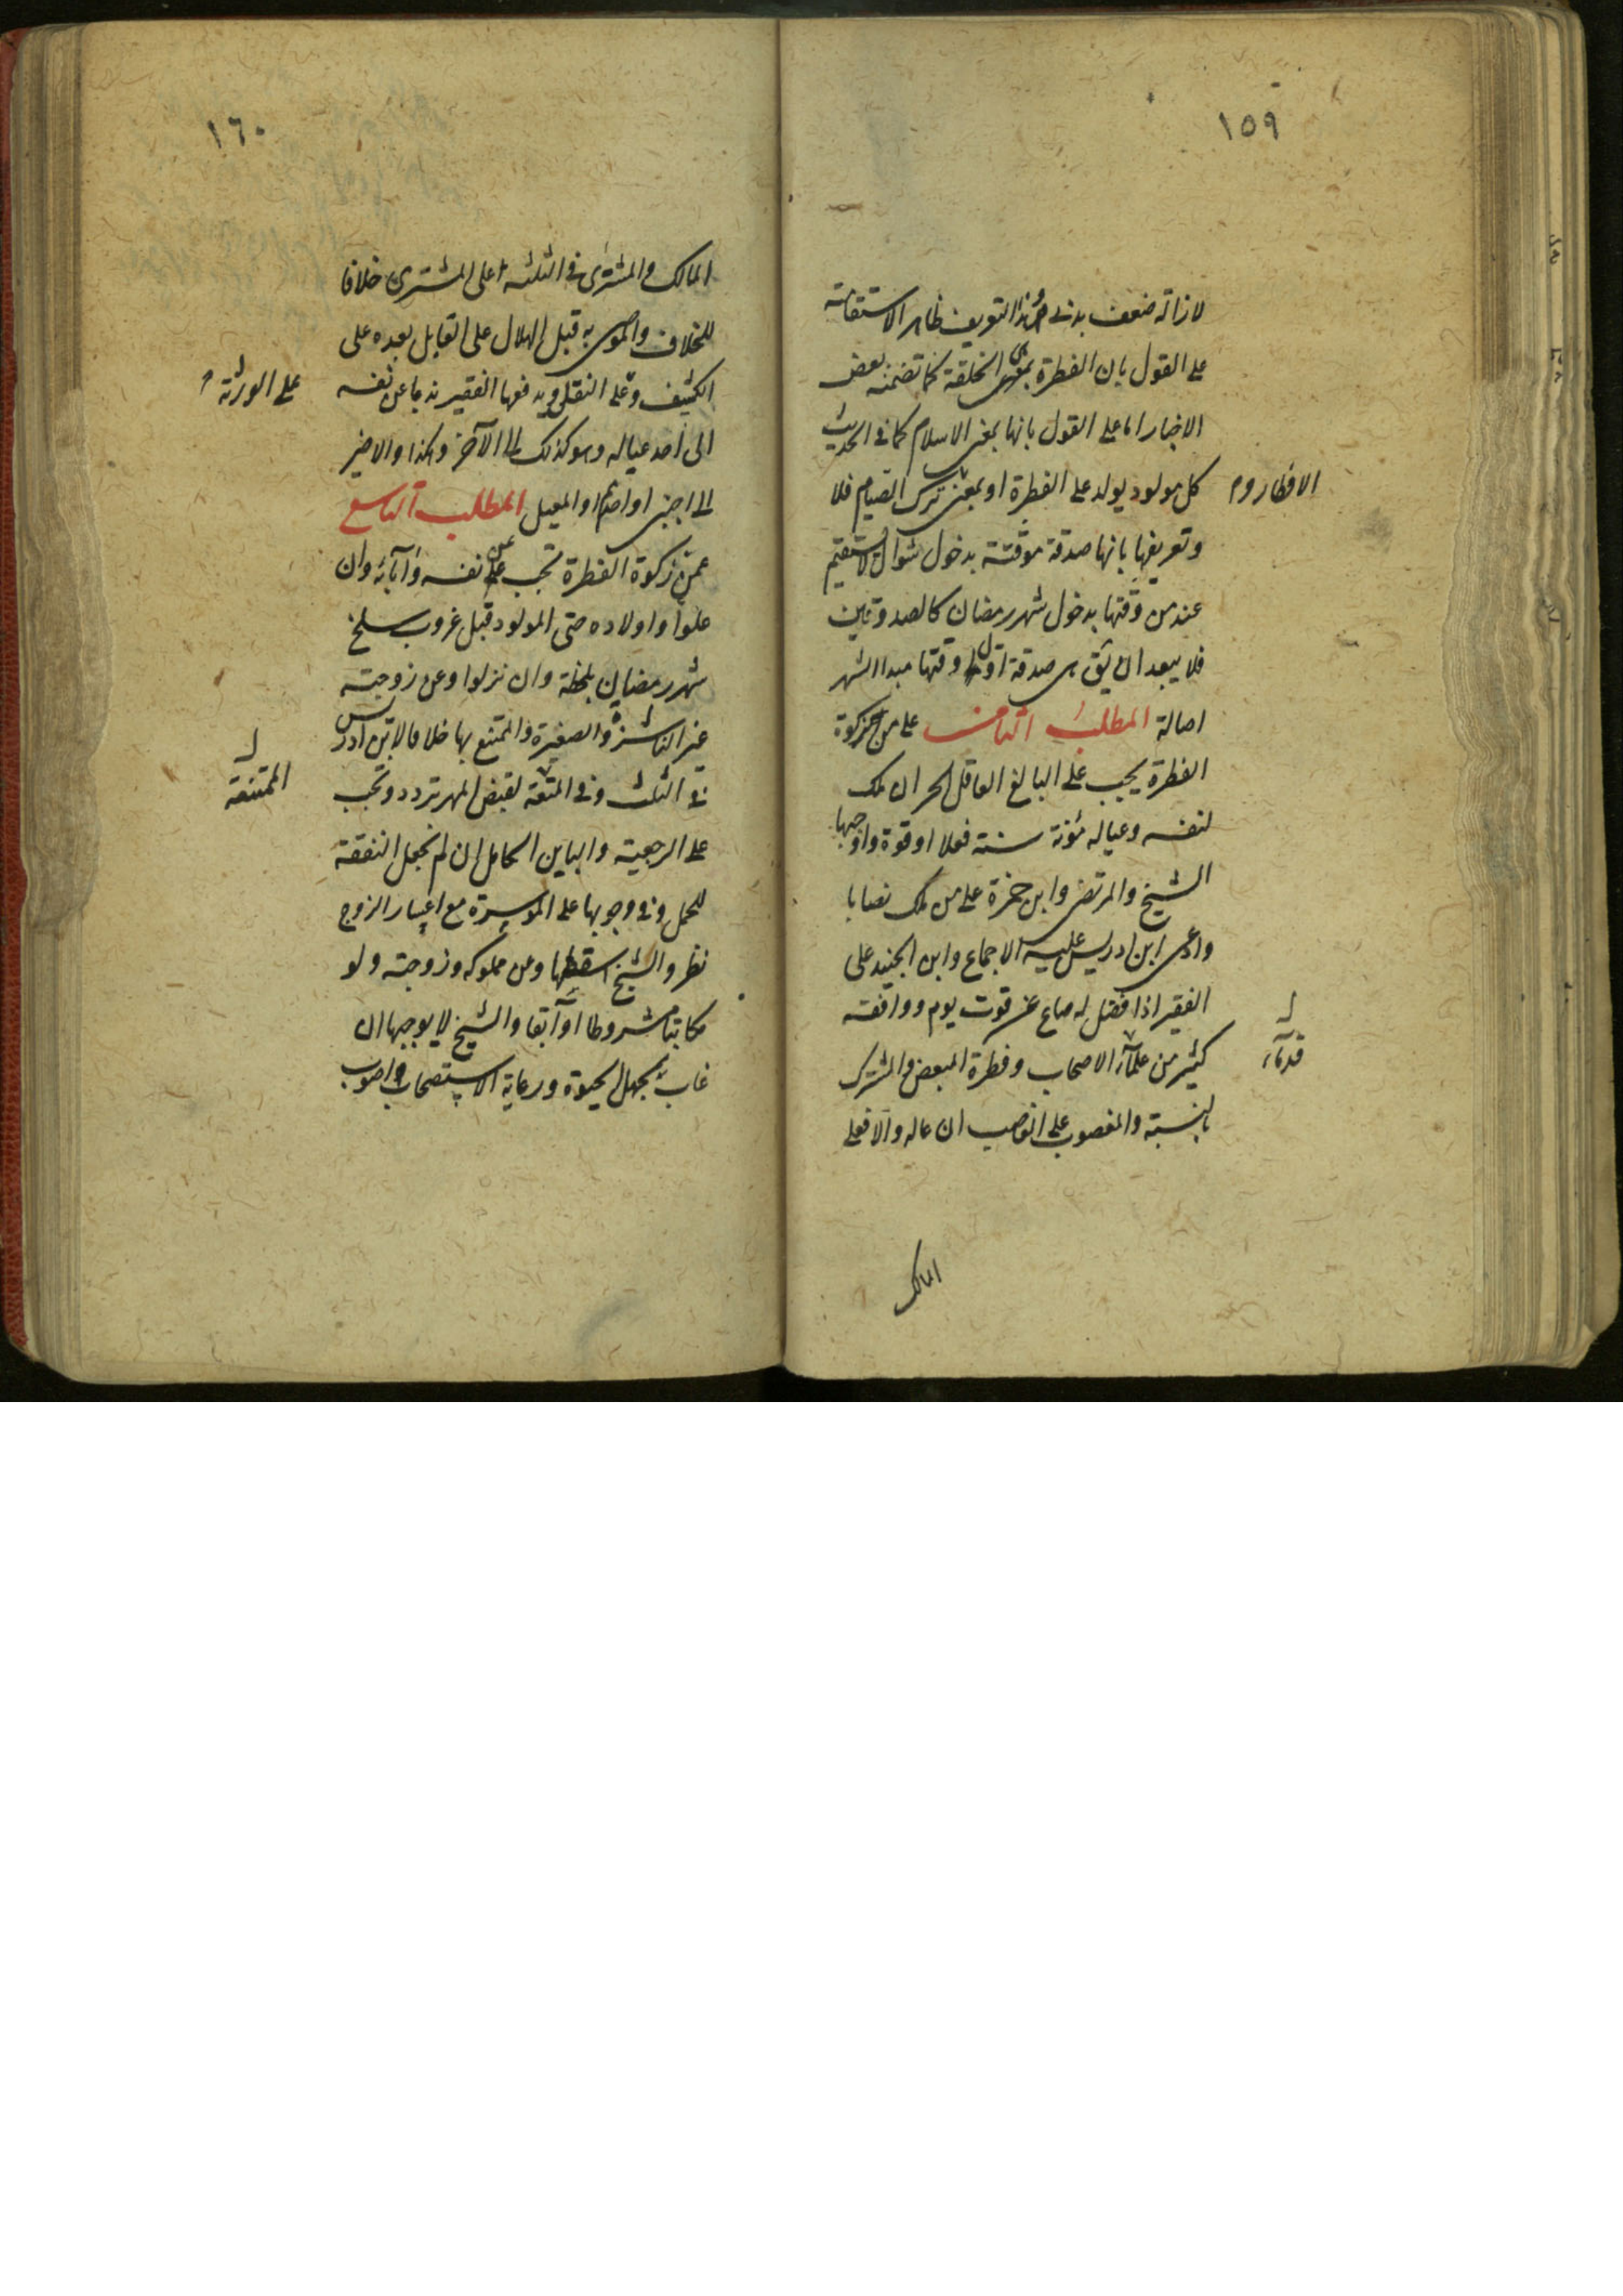 ١٥٩
لازالة ضعف بدنى وهذا التعريف ظاهر الاستقامة
على القول بان الفطرة بمعنى الخلقة كما تضمنه بعض
الاخبار اما على القول بانها بمعنى الاسلام كما فى الحديث
كل مولود يولد على الفطرة او بمعنى ترك الصيام فلا
الافطار وم
وتعريفها بانها صدقة موقتة بدخول شوال لا يستقيم
عند من وقتها بدخول شهر رمضان كالصدوقين
فلا يبعد ان يق هى صدقة اول وقتها مبدا الشهر
اصالة المطلب الثامن على من تجب زكوة
الفطرة يجب على البالغ العاقل الحر ان ملك
لنفسه وعياله مؤنة سنة فعلا او قوة واوجبها
الشيخ والمرتضى وابن حمزة على من ملك نصابا
وادعى ابن ادريس عليه الاجماع وابن الجنيد على
الفقير اذا فضل له صاع عن قوت يوم ووافقه
كثير من علماء الاصحاب وفطرة المبعض والمشترك
قدماء
بالنسبة والمغصوب على الغاصب ان عاله والا فعلى
المالك
١٦٠
المالك والمشترى فى الثلثة على المشترى خلافا
للخلاف والموصى به قبل الهلال على القابل بعده على
الكشف وعلى النقل ويدفعها الفقير ندبا عن نفسه
على الورثة
الى احد عياله وهو كذلك الى الآخر وهكذا والاخير
الى اجنبى او احدهم او المعيل المطلب التاسع
عمن زكوة الفطرة تجب عن نفسه وآبائه وان
علوا واولاده حتى المولود قبل غروب سلخ
شهر رمضان بلحظة وان نزلوا وعن زوجته
غير الناشزة والصغيرة والمتمتع بها خلافا لابن ادريس
فى الثلث وفى المتعة لقبض المهر تردد وتجب
الممتنعة
على الرجعية والباين الحامل ان لم نجعل النفقة
للحمل وفى وجوبها على الموسرة مع اعسار الزوج
نظر والشيخ اسقطها وعن مملوكه وزوجته ولو
مكاتبا مشروطا او آبقا والشيخ لا يوجبها ان
غاب مجهول الحيوة ورعاية الاستصحاب اصوب